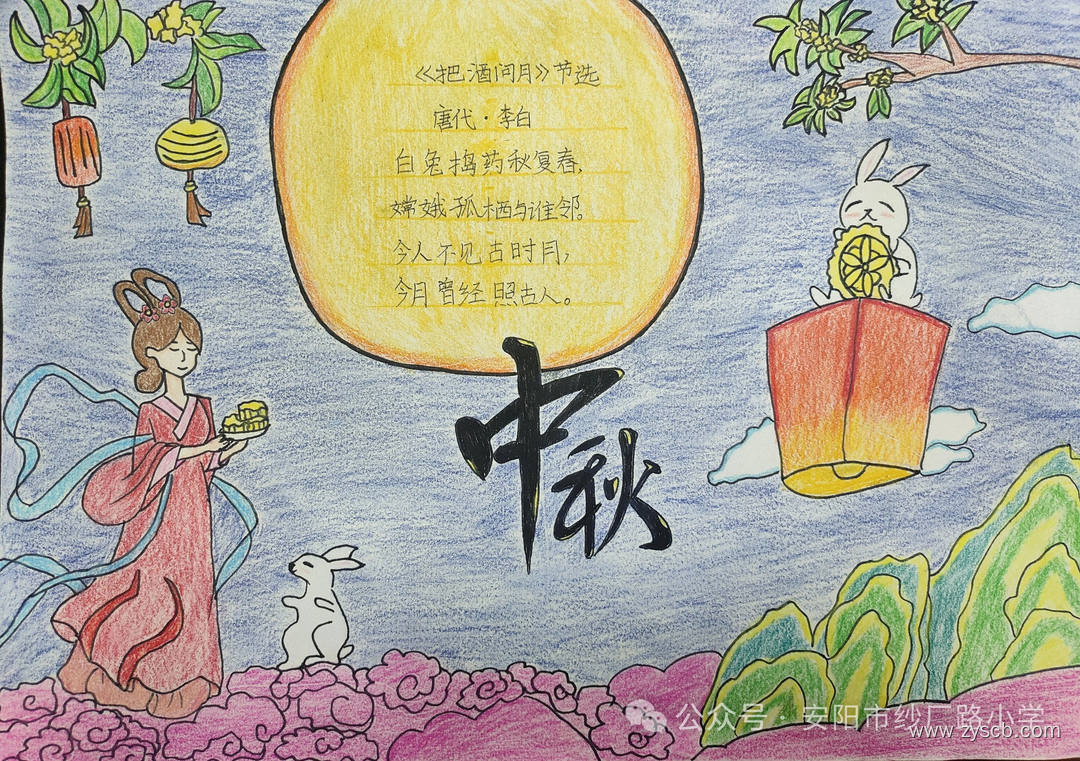 《把酒问月》节选
唐代·李白
白兔捣药秋复春，
嫦娥孤栖与谁邻。
今人不见古时月，
今月曾经照古人。
中秋
公众号·安阳市纱厂路小学
www.zyscb.com